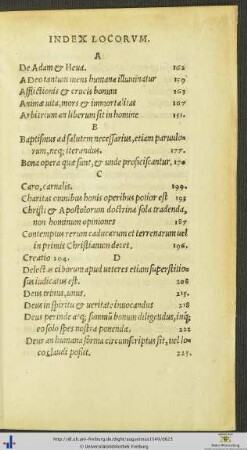 INDEX LOCORVM.
A
De Adam & Heua. 162
A Deo tantum mens humana illuminatur 159
Afflictionis & crucis bonum 163
Animæ uita, mors & immortalitas 167
Arbitrium an liberum sit in homine 151.
B
Baptismus ad salutem necessarius, etiam paruulo-
rum, neq; iterandus. 177.
Bona opera quæ sunt, & unde proficiscantur, 170
C
Caro, carnalis. 199.
Charitas omnibus honis operibus potior est 193
Christi & Apostolorum doctrina sola tradenda,
non hominum opiniones 187
Contemptus rerum caducarum et terrenarum uel
in primis Christianum decet, 196.
Creatio 204. D
Delectus ciborum apud ueteres etiam superstitio-
sus iudicatus est. 208
Deus trinus, unus. 215.
Deus in spiritu & ueritate inuocandus 218
Deus perinde atq; summũ bonum diligendus, inq;
eo solo spes nostra ponenda, 222
Deus an humana forma circumscriptus sit, uel lo-
co claudi possit. 225.
http://dl.ub.uni-freiburg.de/diglit/augustinus1549/0625
© Universitätsbibliothek Freiburg